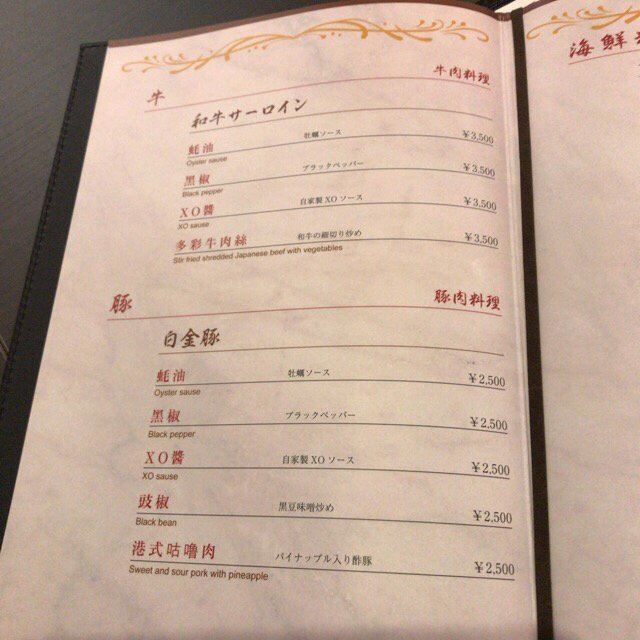 海鮮
牛 牛肉料理
和牛サーロイン
蚝油 牡蠣ソース ¥3,500
Oyster sause
黒椒 ブラックペッパー ¥3,500
Black pepper
XO醬 自家製XOソース ¥3,500
XO sause
多彩牛肉絲 和牛の細切り炒め ¥3,500
Stir fried shredded Japanese beef with vegetables
豚 豚肉料理
白金豚
蚝油 牡蠣ソース ¥2,500
Oyster sause
黒椒 ブラックペッパー ¥2,500
Black pepper
XO醬 自家製XOソース ¥2,500
XO sause
豉椒 黒豆味噌炒め ¥2,500
Black bean
港式咕嚕肉 パイナップル入り酢豚 ¥2,500
Sweet and sour pork with pineapple